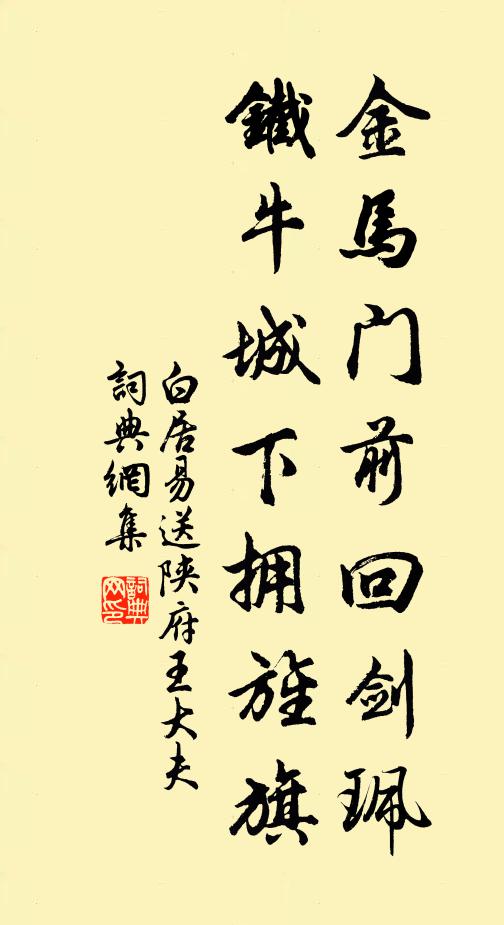 金馬门前回剑珮
鐵牛城下拥旌旗
白居易送陕府王大夫
詞典網集
詞典网印